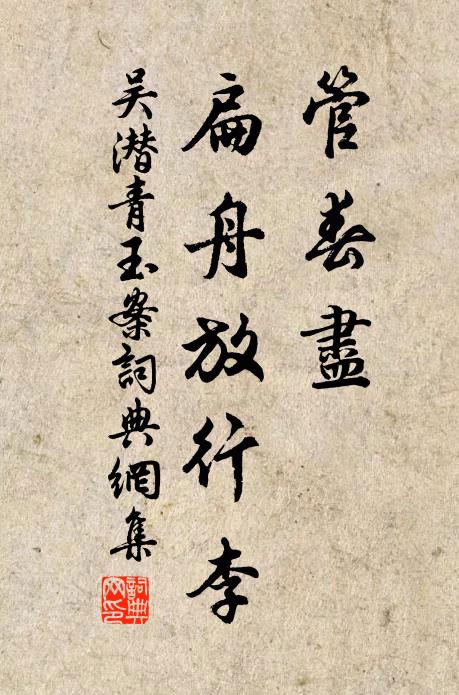 管春盡
扁舟放行李
吴潜青玉案詞典網集
詞典网印